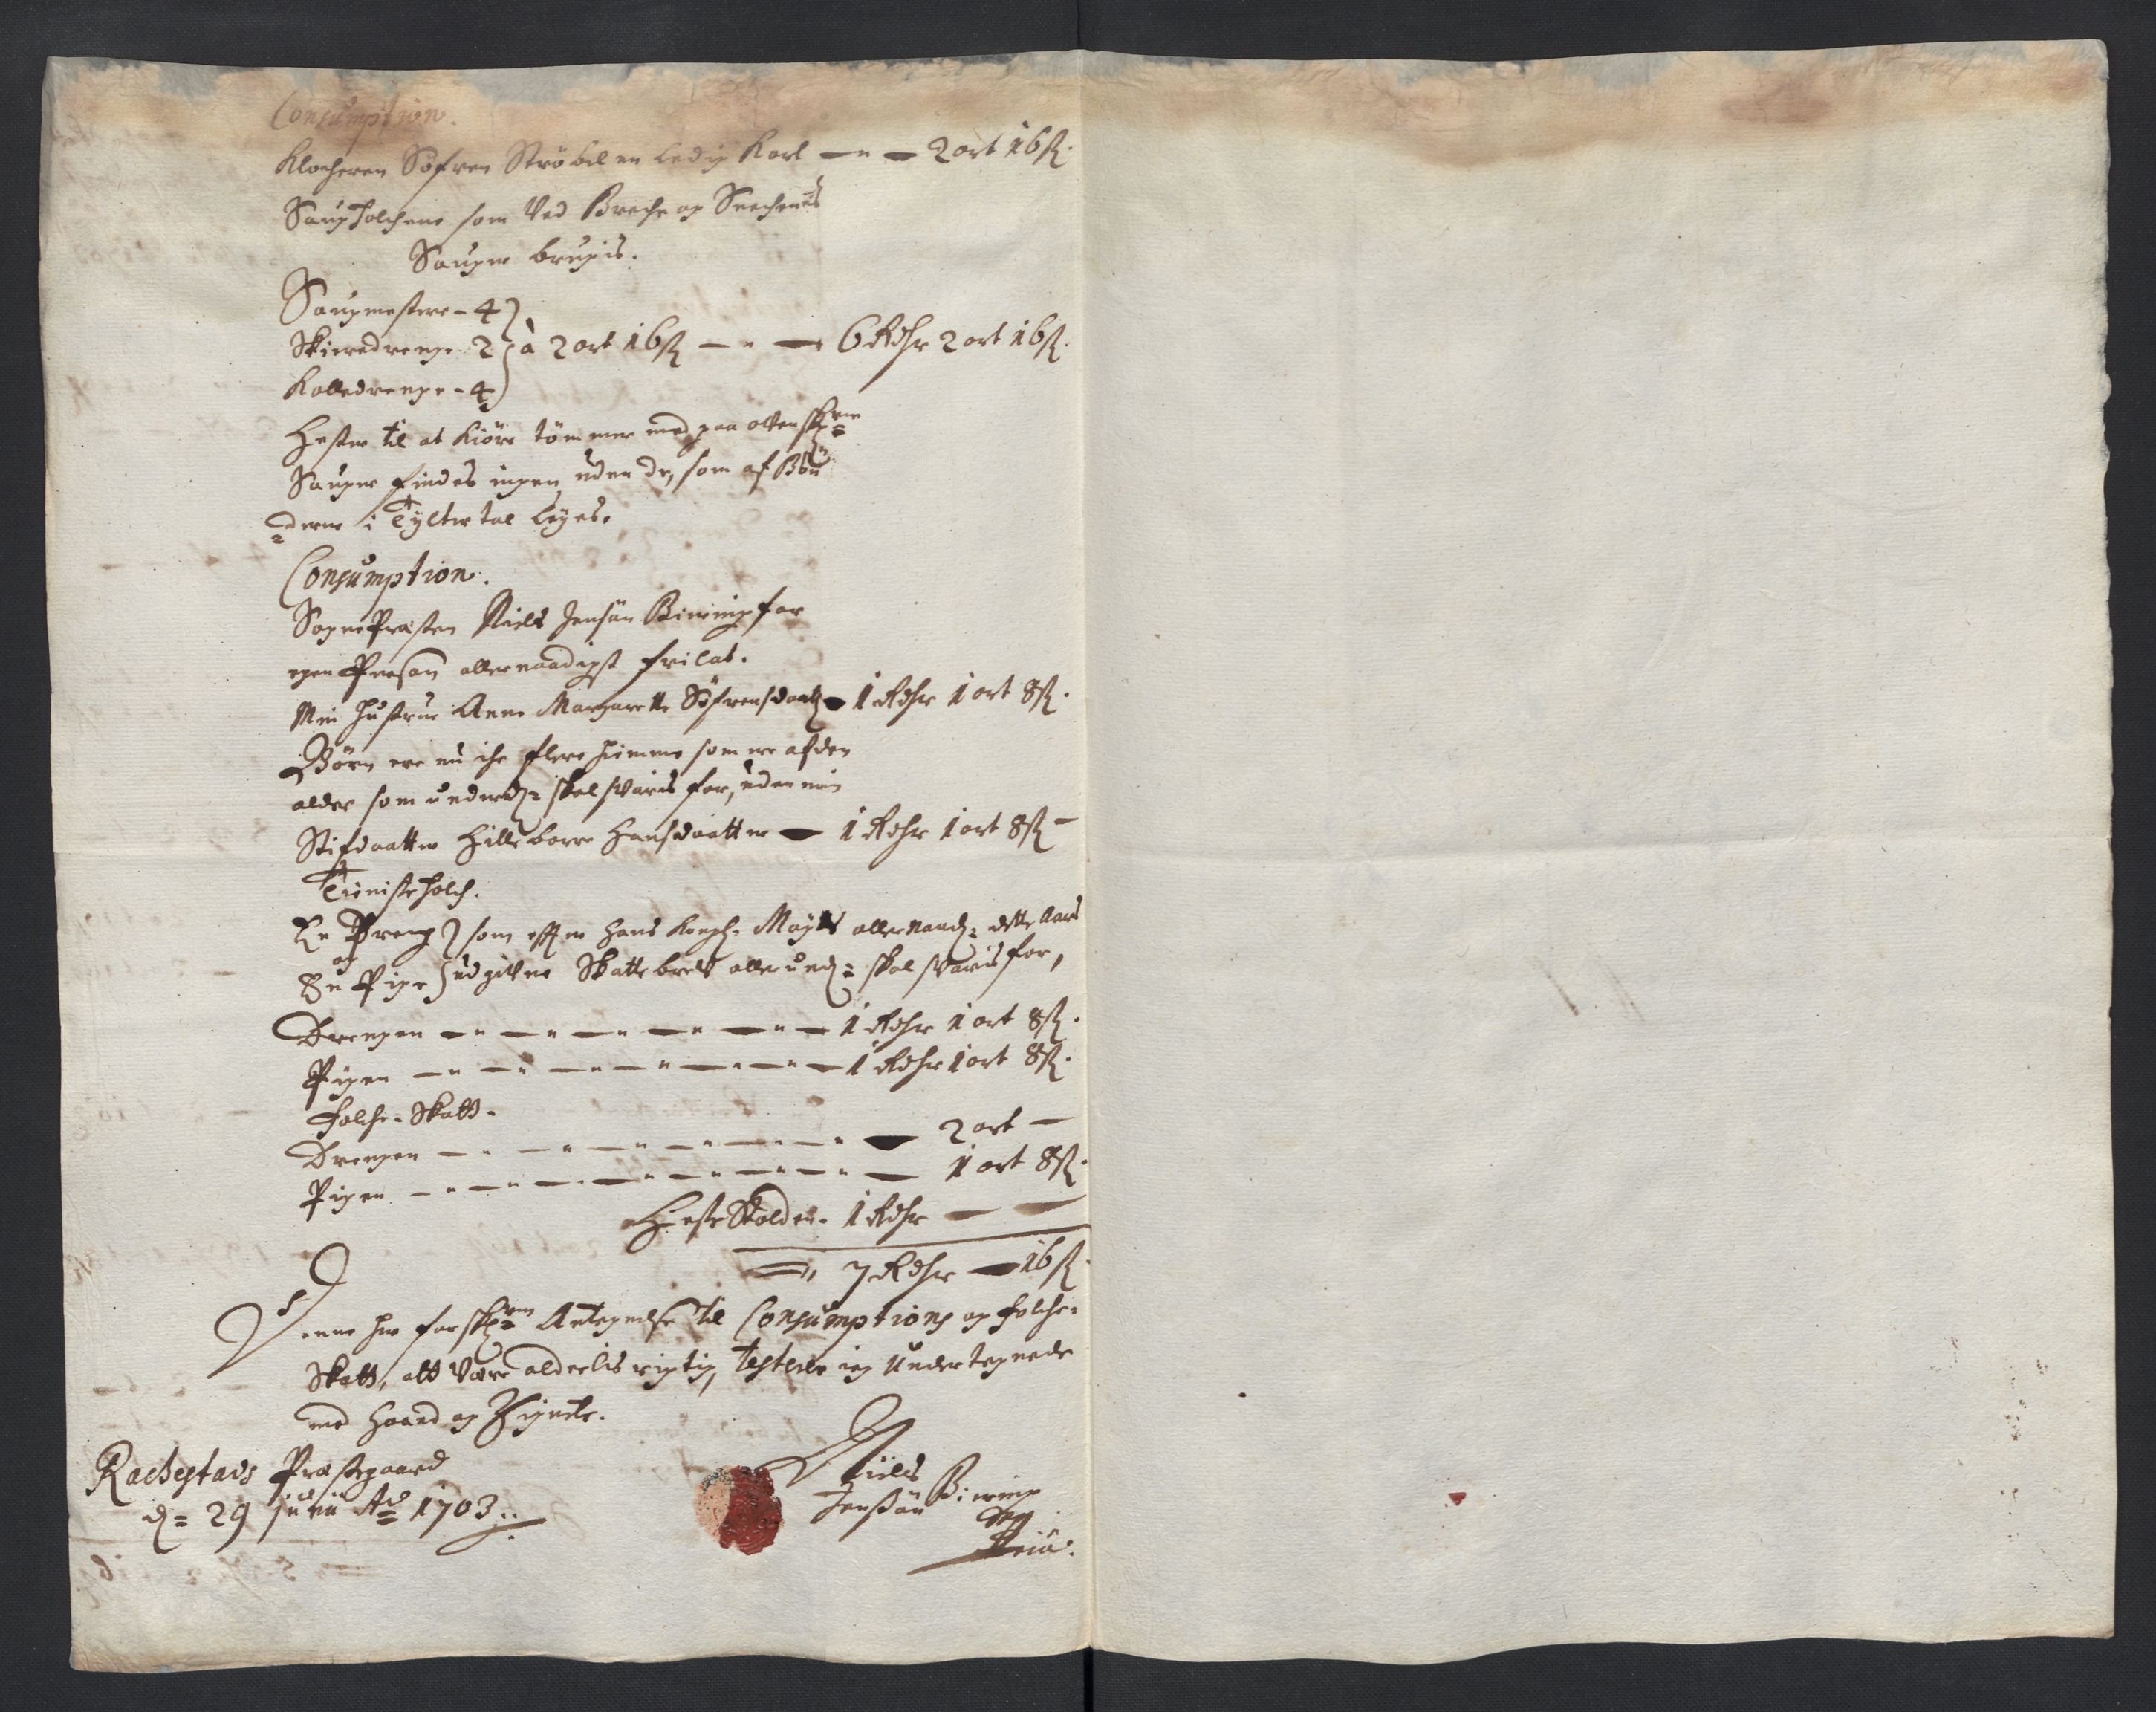 Consumption.
Klocheren Søfren Strøbel en ledig Karl — 2 ort 16 ß.
Saugfolchene som ved Breche og Snechenes
Sauger brugis.
Saugmestere - 4
Skieredrenge 2 à 2 ort 16 ß — 6 Rdhr 2 ort 16 ß.
Kolledrenge - 4
Hester til at kiøre tømmer med paa ofvenskrne
Sauger findes ingen uden de, som af Bøn
derne i Tylter tal leyes.
Consumption.
Sogne Præsten Niels Jensøn Biering for
egen Person allernaadigst frilat.
Min Hustrue Anne Margarette Søfrensdaatter 1 Rdhr 1 ort 8 ß.
Børn ere nu iche flere hiemme som ere af den
alder som underd: skal svaris for, uden min
Stifdaatter Hilleborre Hansdaatter — 1 Rdhr 1 ort 8 ß -
Tieniste Folch.
En Dreng som effter Hans Kongl. Mayts allernaad: dette Aars
og
En Pige udgifne Skatte brefv allerund: skal svaris for,
Drengen — 1 Rdhr 1 ort 8 ß.
Pigen — 1 Rdhr 1 ort 8 ß.
Folche-Skatt.
Drengen — 2 ort —
Pigen — 1 ort 8 ß.
Heste Skolden. 1 Rdhr — —
7 Rdhr — 16 ß.
Denne her forskrne Antegnelse til Consumptions og Folche-
Skatt, att være alderlis rigtig, testerer ieg Undertegnede
med Haand og Zignete.
Rachestads Præstegaard
d= 29 Juny Ao 1703
Niels
Jensøn Biering